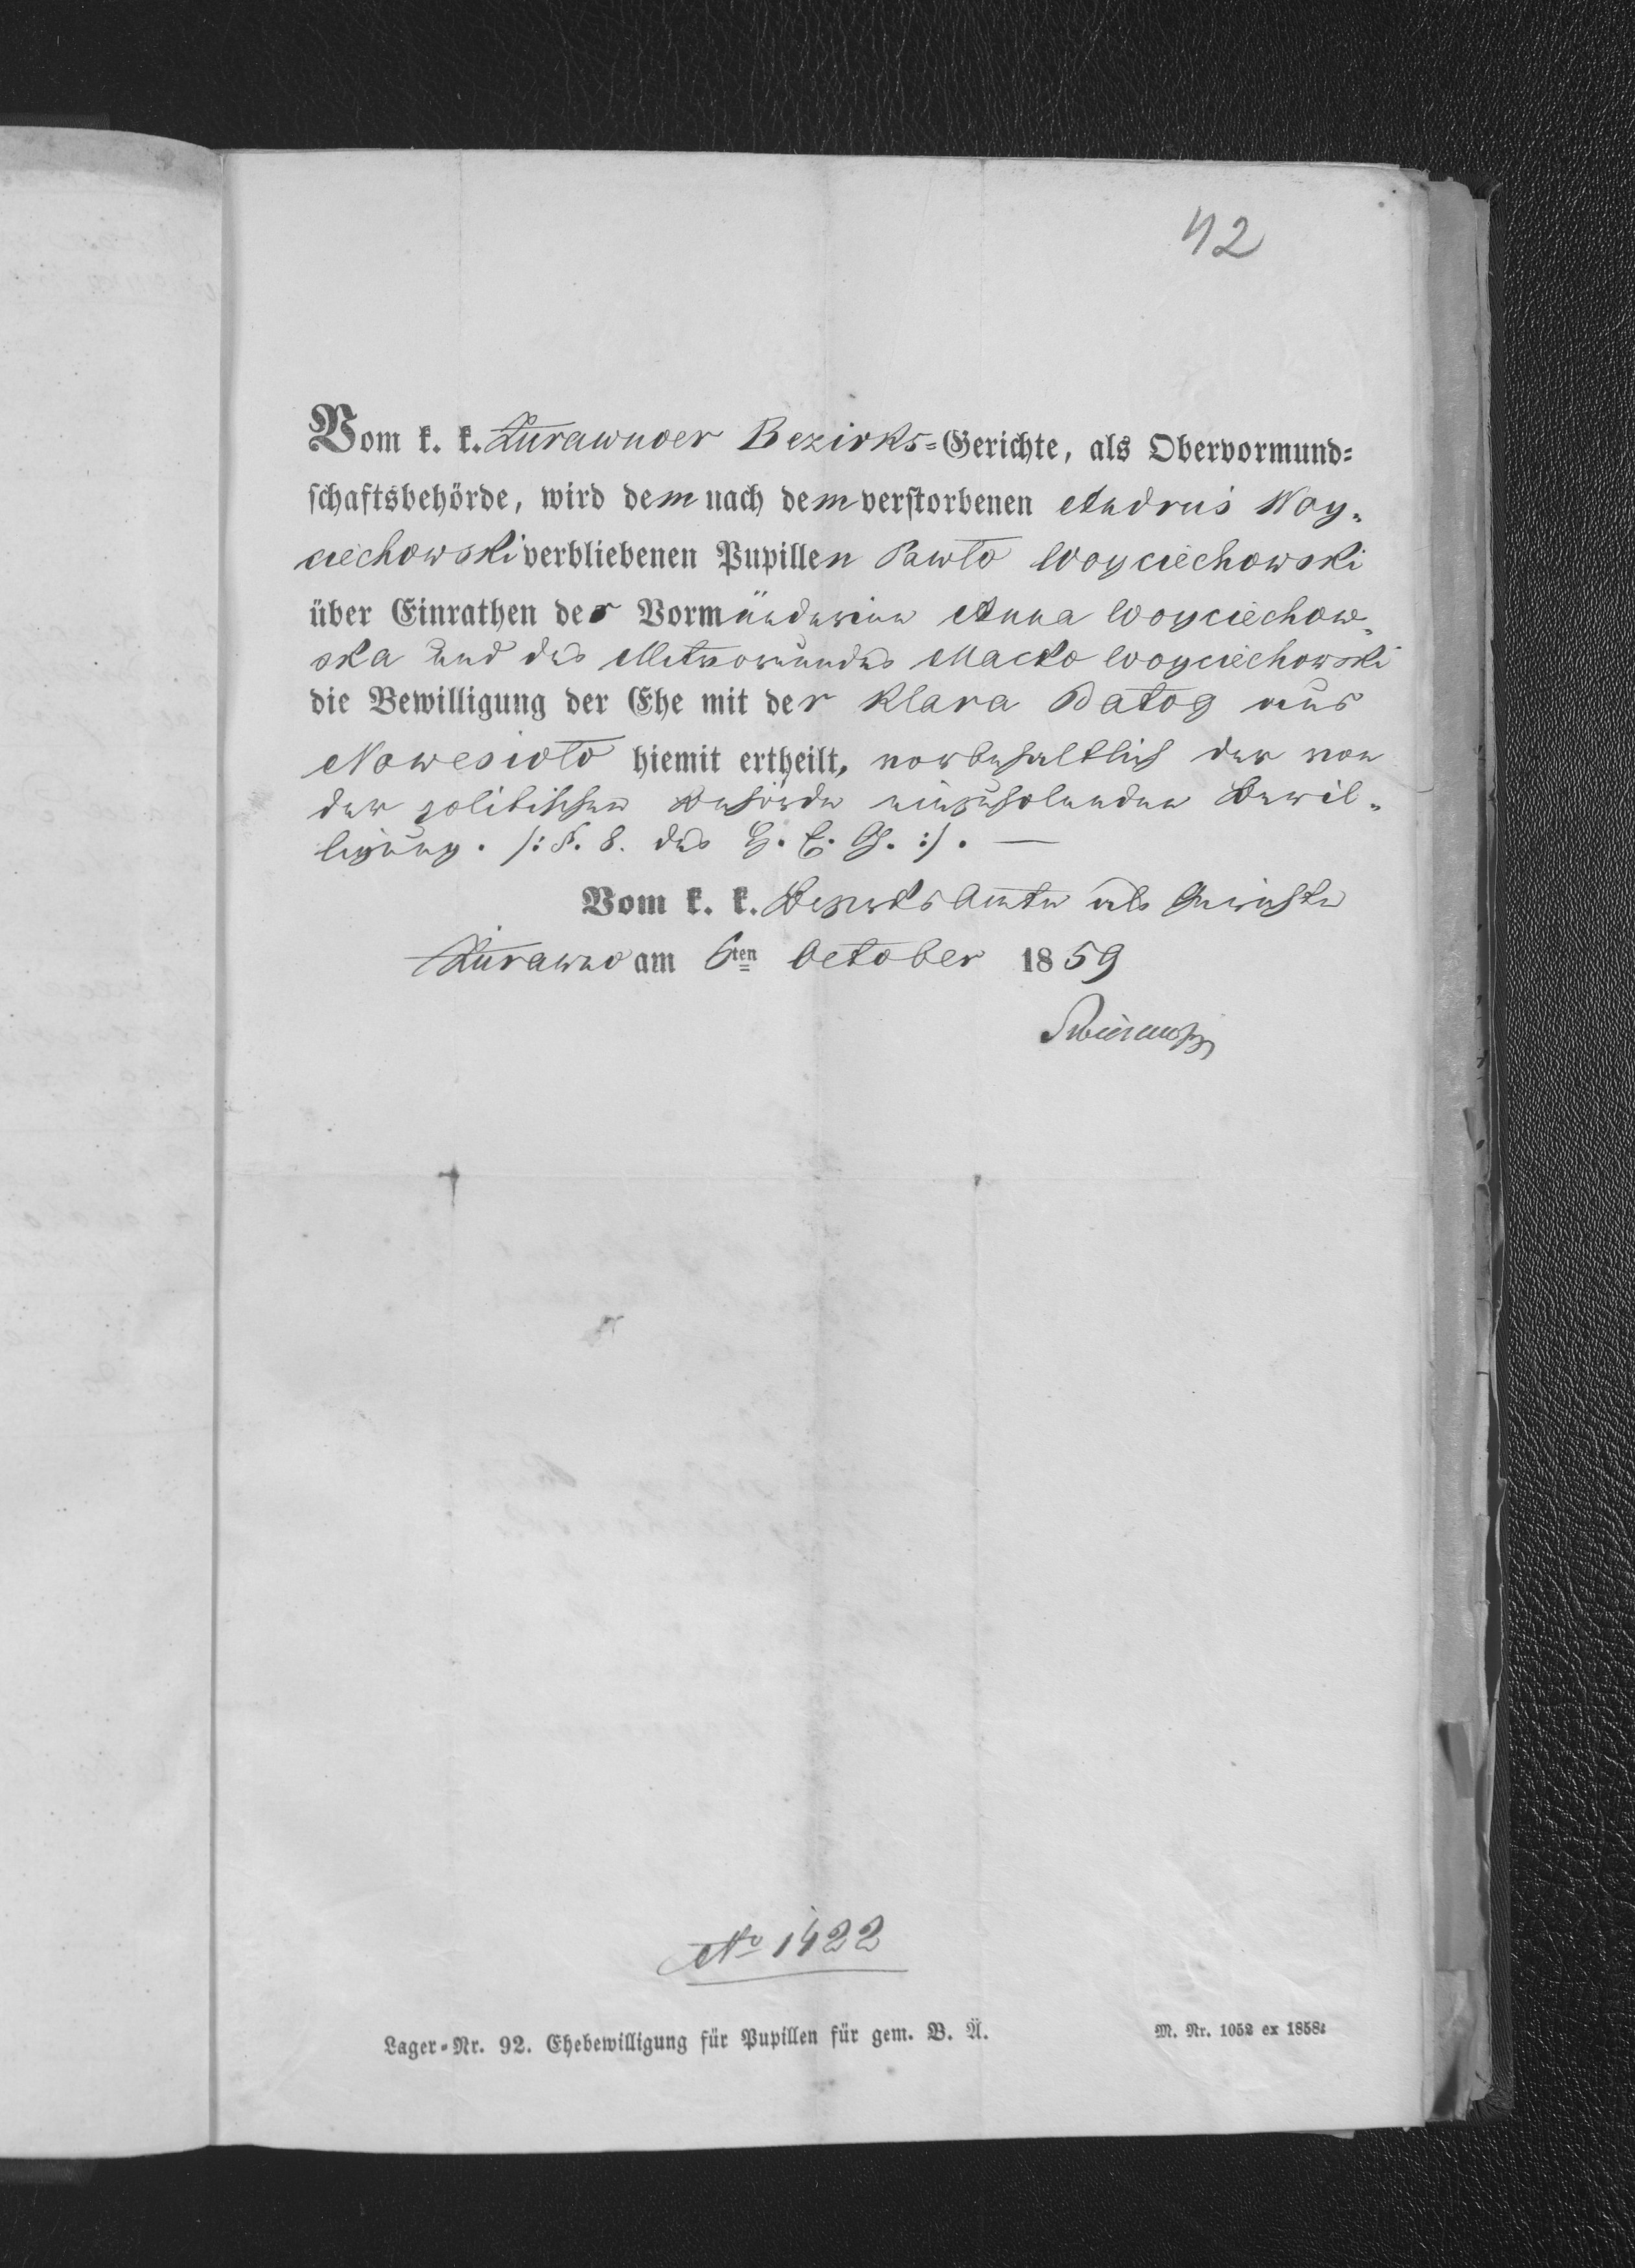 42
Vom k. k. Żurawnoer Bezirks-Gerichte, als Obervormund-
schaftsbehörde, wird dem nach dem verstorbenen Andrus Woy-
ciechowski verbliebenen Pupillen Pawło Woyciechowski
über Einrathen der Vormünderinn Anna Woyciechow-
ska und des Mitvormundes Macko Woyciechowski
die Bewilligung der Ehe mit der Klara Batog aus
Nowesioło hiemit ertheilt, vorbehaltlich der von
der politischen Behörde einzuholenden Bewil-
ligung. /: §. 8. des H. E. G. :/. —
Vom k. k. Bezirksamte als Gerichte
Żurawno am 6ten October 1859
No 1422
Lager-Nr. 92. Ehebewilligung für Pupillen für gem. B. Ä.
M. Nr. 1052 ex 1858.